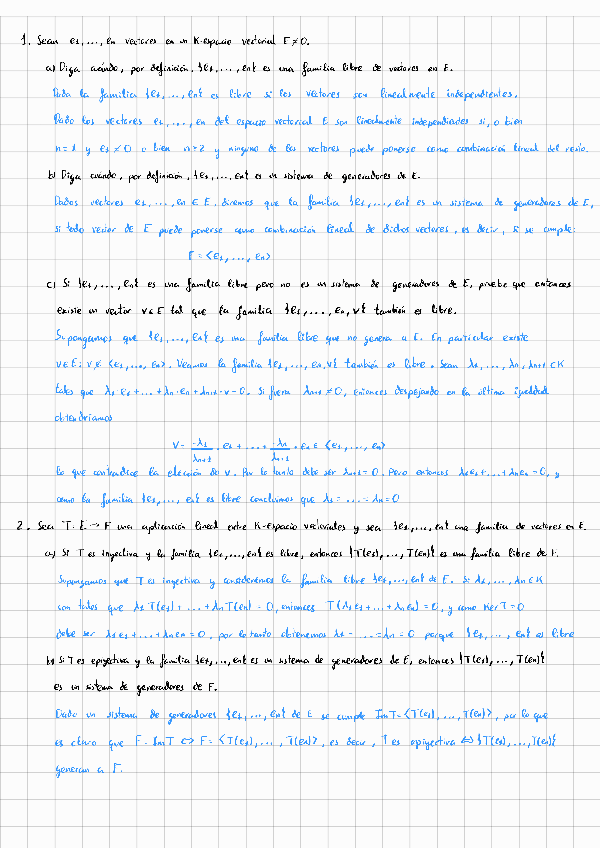 1. Sean e1,...,en vectores en un K-espacio vectorial E≠0.
a) Diga cuándo, por definición, {e1,...,en} es una familia libre de vectores en E.
Dada la familia {e1,...,en} es libre si los vectores son linealmente independientes.
Dado los vectores e1,...,en del espacio vectorial E son linealmente independientes si, o bien
n=1 y e1≠0 o bien n≥2 y ninguno de los vectores puede ponerse como combinación lineal del resto.
b) Diga cuándo, por definición, {e1,...,en} es un sistema de generadores de E.
Dados vectores e1,...,en ∈ E, diremos que la familia {e1,...,en} es un sistema de generadores de E,
si todo vector de E puede ponerse como combinación lineal de dichos vectores, es decir, si se cumple:
E=<e1,...,en>
c) Si {e1,...,en} es una familia libre pero no es un sistema de generadores de E, pruebe que entonces
existe un vector v∈E tal que la familia {e1,...,en,v} también es libre.
Supongamos que {e1,...,en} es una familia libre que no genera a E. En particular existe
v∈E: v∉<e1,...,en>. Veamos la familia {e1,...,en,v} también es libre. Sean λ1,...,λn,λn+1 ∈K
tales que λ1·e1+...+λn·en+λn+1·v=0. Si fuera λn+1≠0, entonces despejando en la última igualdad
obtendríamos
v= -λ1/λn+1 · e1 +...+ -λn/λn+1 · en ∈ <e1,...,en>
lo que contradice la elección de v. Por lo tanto debe ser λn+1=0. Pero entonces λ1e1+...+λnen=0, y
como la familia {e1,...,en} es libre concluimos que λ1=...=λn=0
2. Sea T:E→F una aplicación lineal entre K-espacio vectoriales y sea {e1,...,en} una familia de vectores en E.
a) Si T es inyectiva y la familia {e1,...,en} es libre, entonces {T(e1),...,T(en)} es una familia libre de F.
Supongamos que T es inyectiva y consideremos la familia libre {e1,...,en} de E. Si λ1,...,λn∈K
son tales que λ1T(e1)+...+λnT(en)=0, entonces T(λ1e1+...+λnen)=0, y como KerT=0
debe ser λ1e1+...+λnen=0, por lo tanto obtenemos λ1=...=λn=0 porque {e1,...,en} es libre
b) Si T es epiyectiva y la familia {e1,...,en} es un sistema de generadores de E, entonces {T(e1),...,T(en)}
es un sistema de generadores de F.
Dado un sistema de generadores {e1,...,en} de E se cumple ImT=<T(e1),...,T(en)>, por lo que
es claro que F=ImT ⇔ F=<T(e1),...,T(en)>, es decir, T es epiyectiva ⇔ {T(e1),...,T(en)}
generan a F.